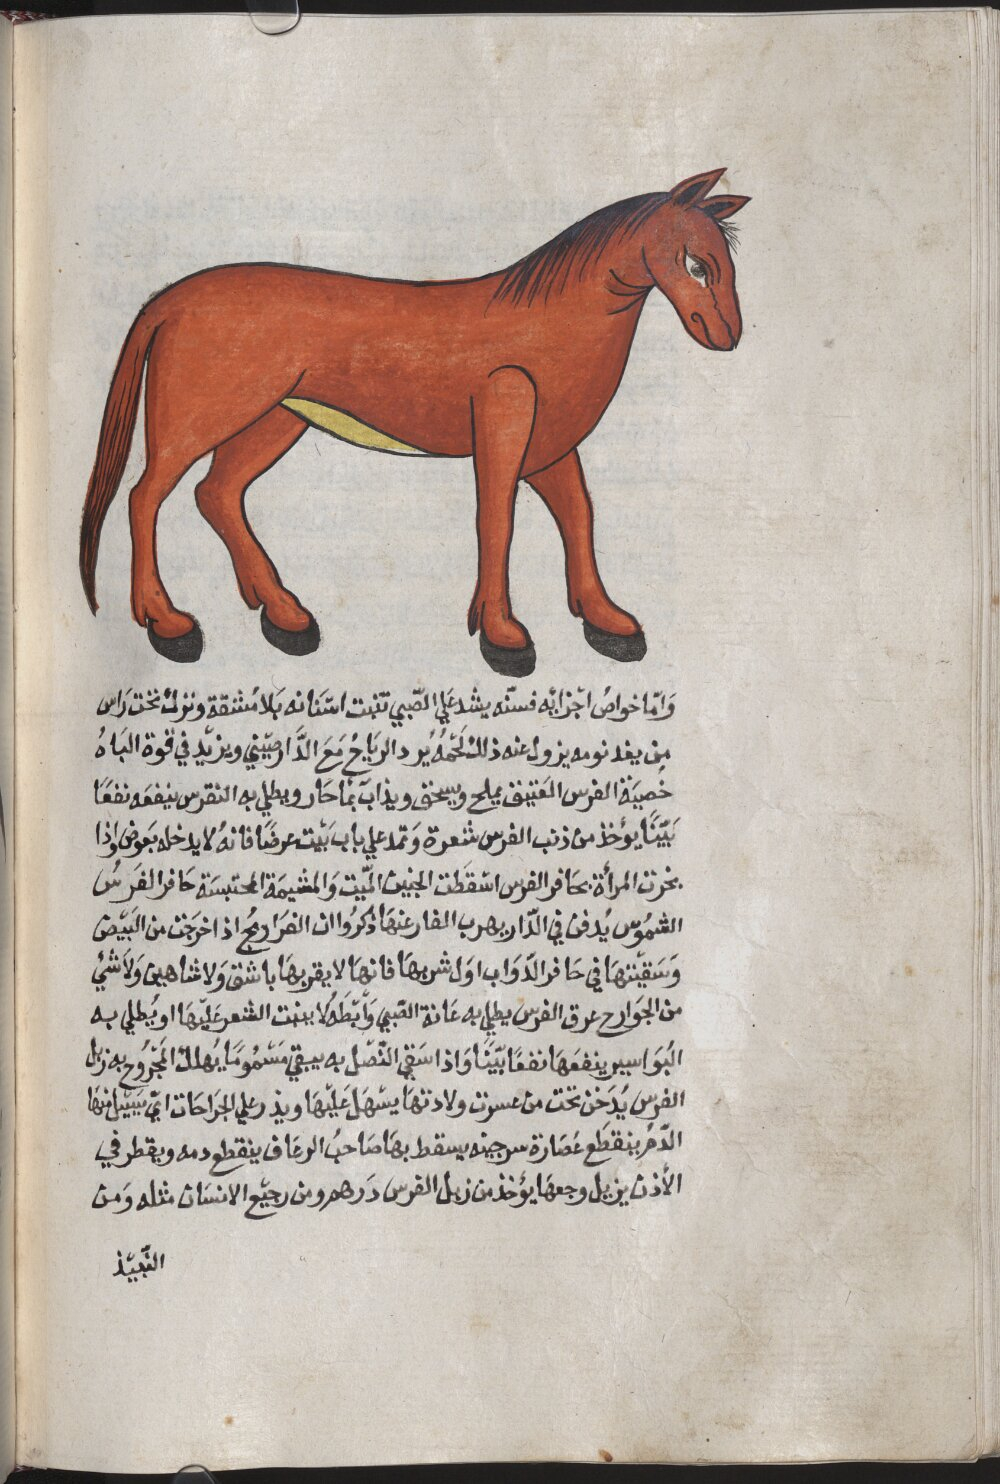 وَامّا خواصُ اجْزايُه فسنّه يشد علي الصّبي تنبت اسْنَانه بَلا مُشقة ونزلُ تحت رَاس
من يغد نومه يزول عنه ذلك لحْمُهُ يُرد الرياحُ مَعَ الدَّارصيّني ويزيْد في قوة البَاهُ
خُصيَة الفرس العَتِيْق يملح ويسحق ويذابَ بمَا حَار ويطلي به النقرس ينفعَه نفعًا
بَيّنًا يؤخذ من ذنب الفرس شعرة وَتمد علي باب بَيْت عرضًا فانهُ لا يدخله بَعوض واذا
بخرت المرأة بحَافر الفرس اسقطت الجنين الميّت وَالمشيمَة المحتبسَة حَافر الفَرسُ
الشمُوس يُدفن في الدّار يهرب الفار عنهَا ذكرُوا ان الفرَاريجُ اذ اخرجَت من البَيْض
وَسَقيْتهَا في حَافر الدّوَاب اوَل شربهَا فانهَا لا يقربهَا باشق وَلا شاهين وَلا شئُ
من الجوَارح عرق الفرس يطلي به عَانة الصّبي وَابْطَهُ لا ينبت الشعر عَليْهَا او يُطلي به
البُوَاسير ينفعهَا نفعًا بيّنًا وَاذا سَقي النصْل به يبقي مَسْمُومًا يُهلك المجْرُوح به زبل
الفرس يُدَخن تحْت من عسرت ولادتهَا يسْهل عَليْهَا ويذر علي الجرَاحَات التي يَسيْل منهَا
الدّمُ ينقطَع عُصَارة سرجينه يسقط بهَا صَاحبُ الرعَاف ينقطع دمه ويقطر في
الأذن يزيل وجعهَا يؤخذ من زبل الفرس دَرهم ومن رجيْع الانسَان مثله وَمن
النَّبيْذ